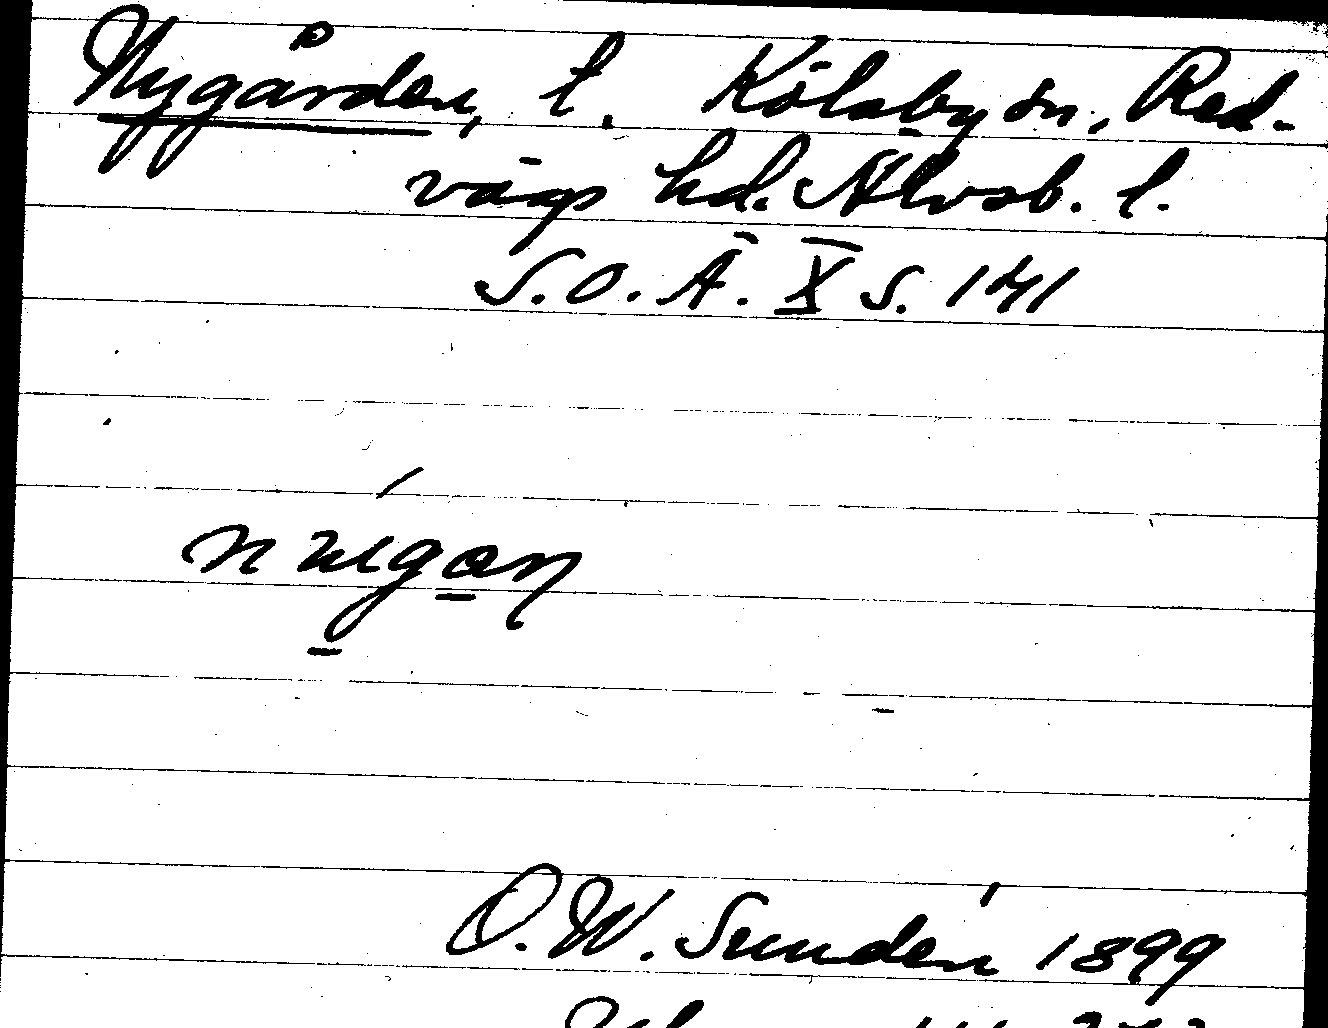 Nygården, t. Kölaby sn, Red-
vägs hd. Älvsb. l.
S.O.Ä. X s. 141
O.W. Sundén 1899